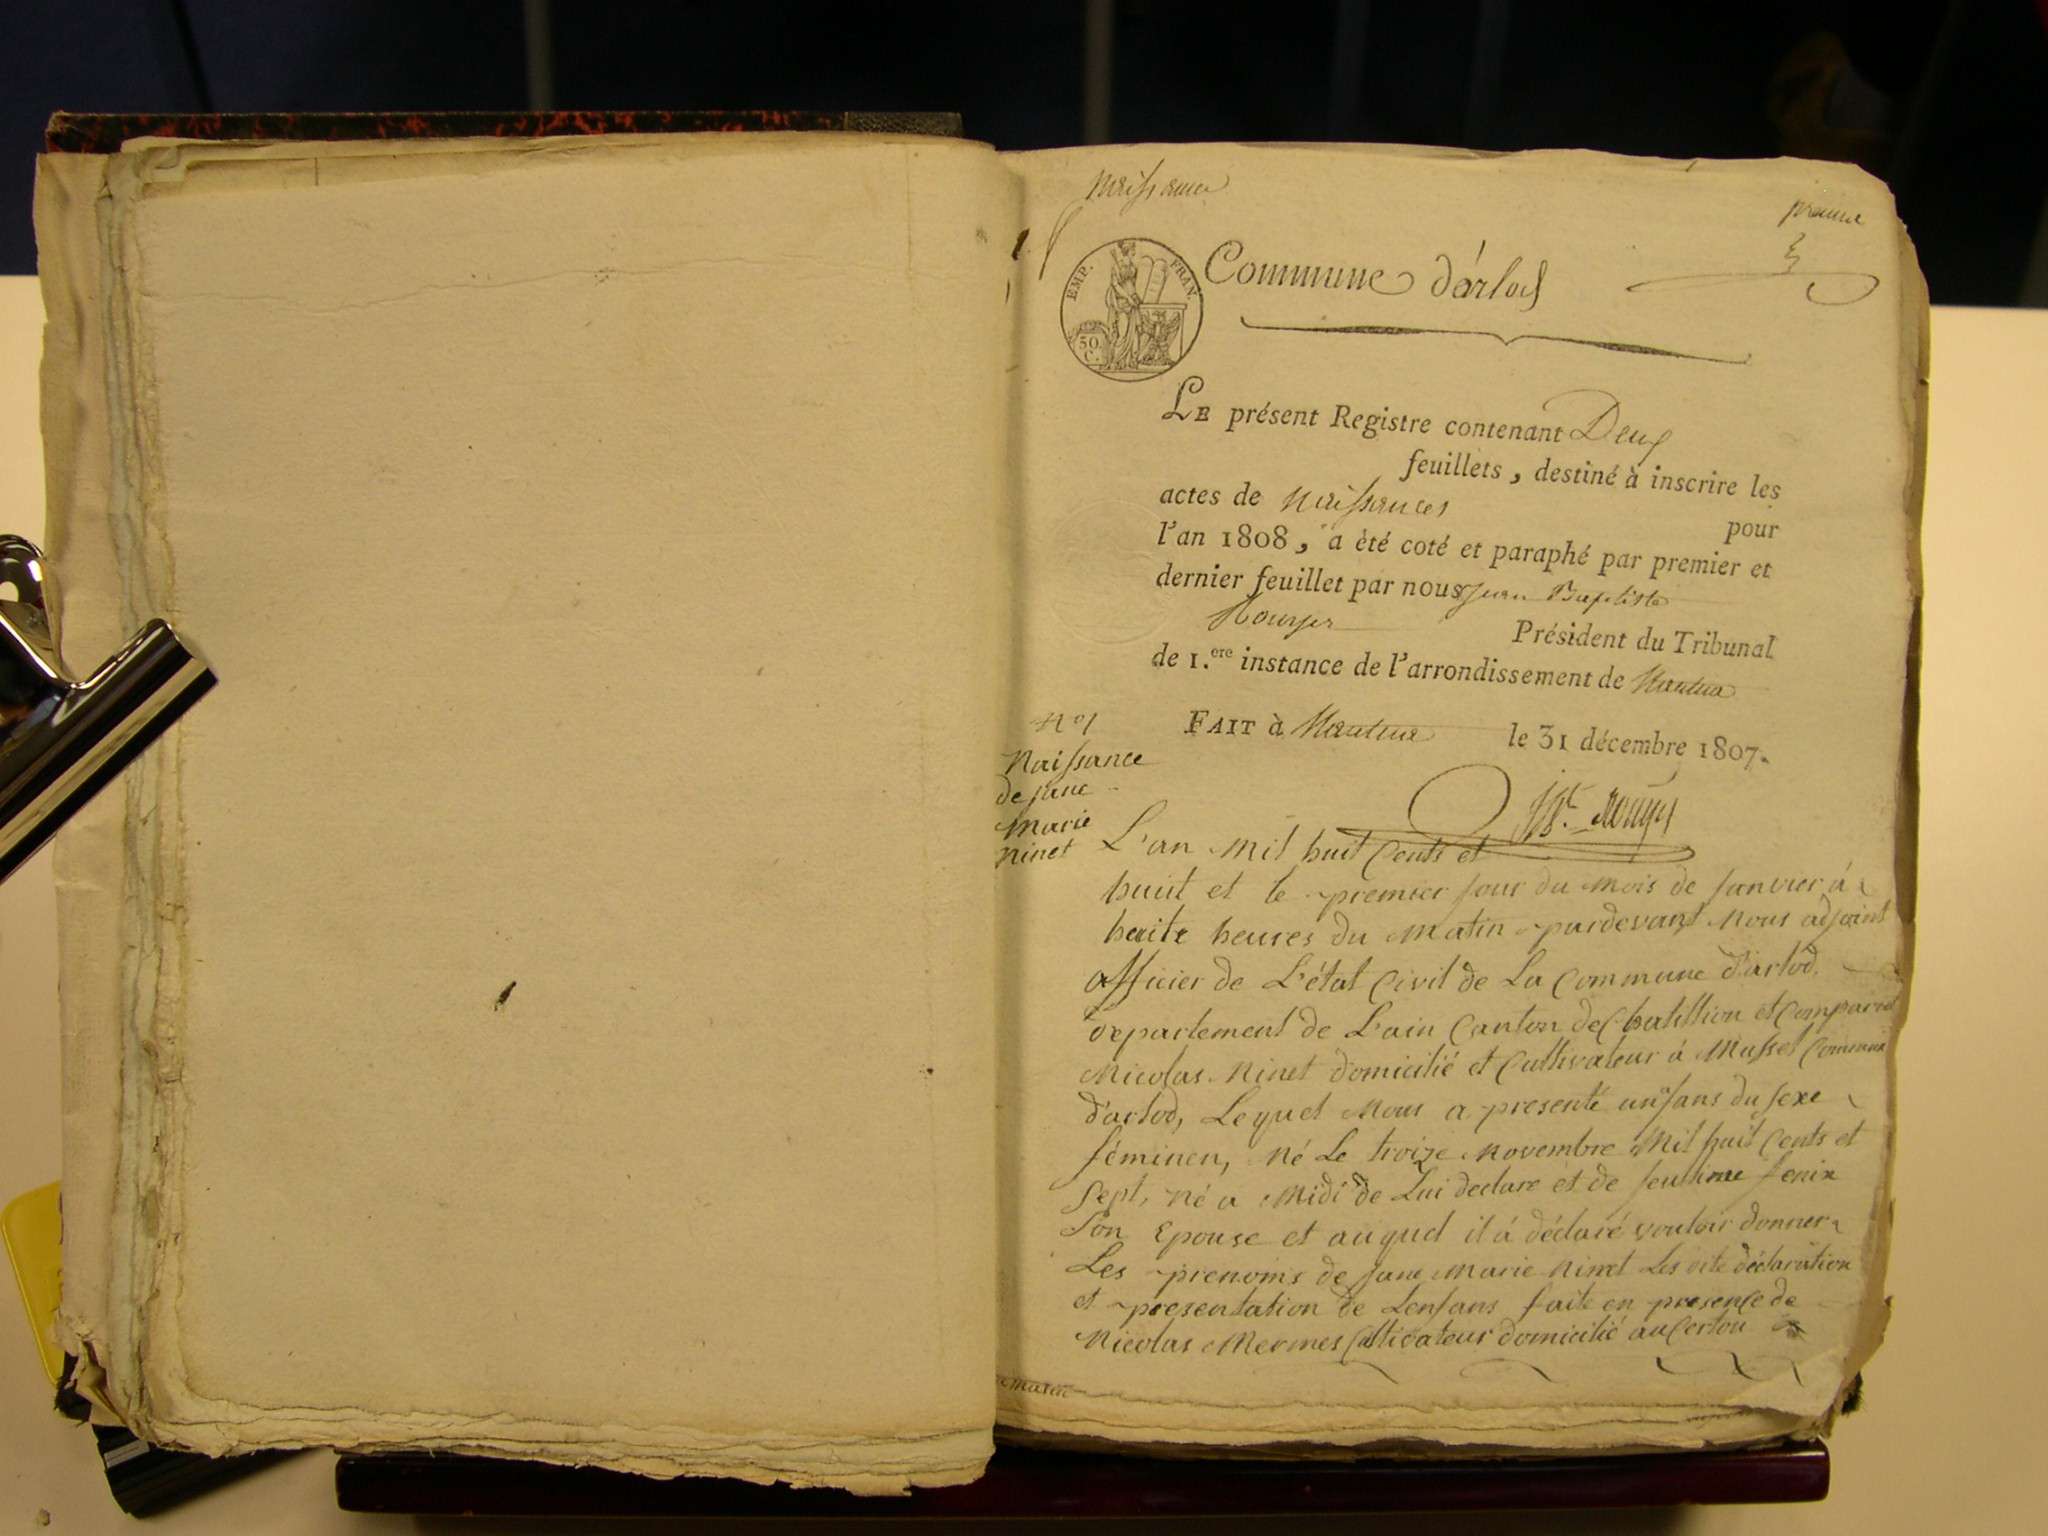 Naissance
premier
EMP. FRAN.
50. C.
Commune d'arlod
LE présent Registre contenant Deux
feuillets, destiné à inscrire les
actes de Naissances
pour
l'an 1808, a été coté et paraphé par premier et
dernier feuillet par nous Jean Baptiste
Rouyer
Président du Tribunal
de 1.ere instance de l'arrondissement de Nantua
FAIT à Nantua le 31 décembre 1807.
N° 1
Naissance
de jane
Marie
Ninet
L'an Mil huit Cents et
huit et le premier jour du Mois de Janvier à
huite heures du Matin pardevant Nous adjoint
officier de L'état Civil de La Commune d'arlod
departement de L'ain Canton de Chatillion et Comparut
Nicolas Ninet domicilié et Cultivateur à Mussel Commune
d'arlod, Lequel Nous a presenté unfans du sexe
féminen, Né Le troize Novembre Mil huit Cents et
Sept, Né a Midi de Lui declare et de fenix
Son Epouse et auquel il à déclaré vouloir donner
Les prenoms de jane Marie Ninet Les dite déclaration
et presentation de Lenfans faite en presence de
Nicolas Mermes Cultivateur domicilié au Certou